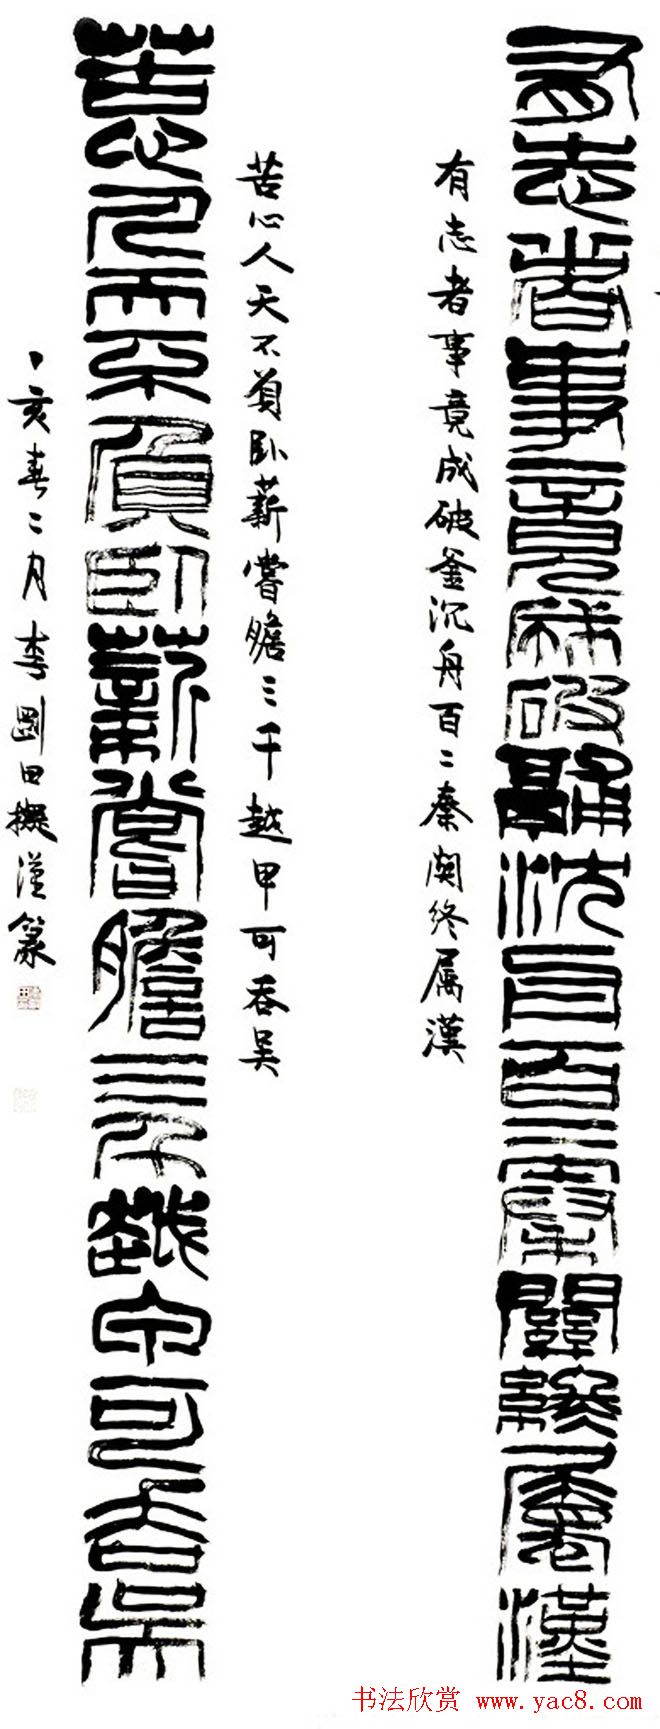 有志者事竟成破釜沉舟百二秦関終属漢
有志者事竟成破釜沉舟百二秦関终属漢
苦心人天不負卧薪嘗膽三千越甲可吞吴
苦心人天不負卧薪嘗膽三千越甲可吞吴
丁亥春二月李剛田擬漢篆
书法欣赏 www.yac8.com